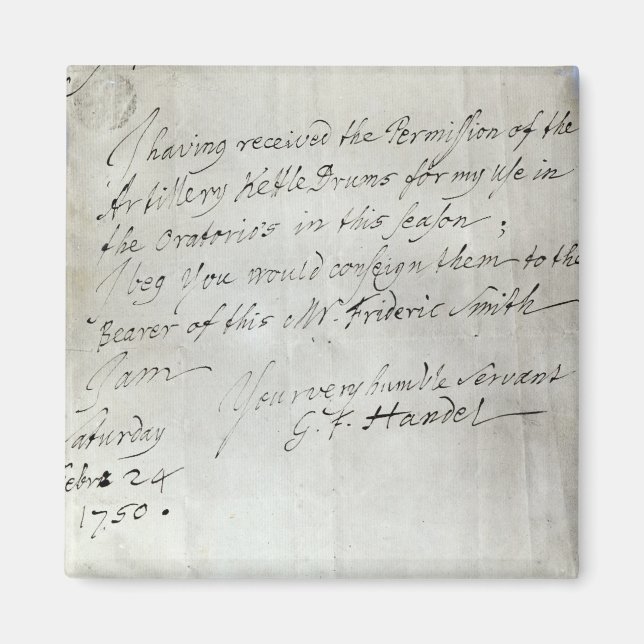 I having received the Permission of the
Artillery Kettle Drums for my use in
the Oratorio's in this season;
I beg You would conseign them to the
Bearer of this Mr. Frideric Smith
I am
Your very humble servant
G. F. Handel
Saturday
Febr 24
1750.